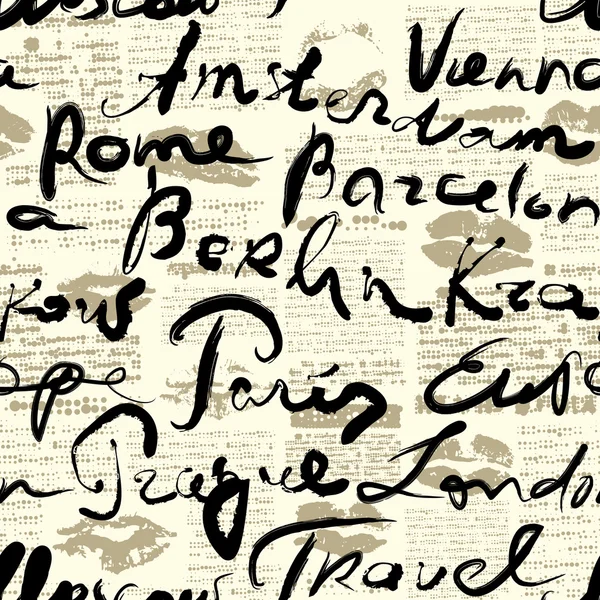 Moscow
a Amsterdam Vienna
Rome Barcelon
a Berlin Kra
kow Paris Euro
ope Prague London
n Travel
Moscow